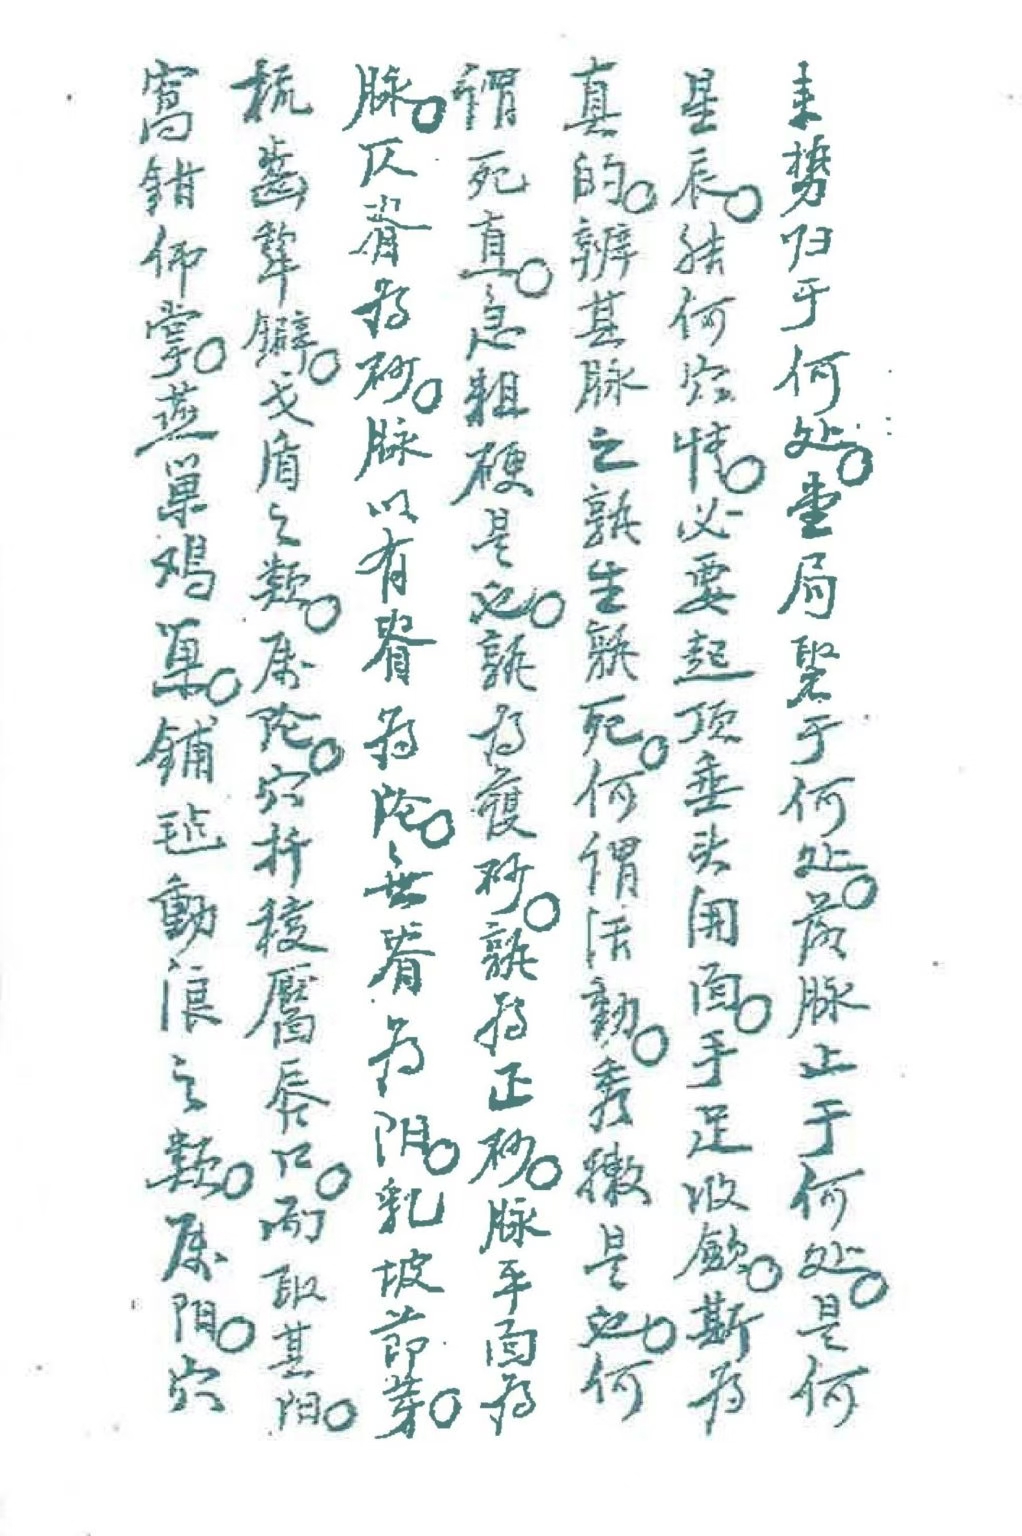 来势归于何处。堂局聚于何处。落脉止于何处。是何
星辰。结何穴情。必要起顶垂头开面。手足收敛。斯为
真的。辨其脉之孰生孰死。何谓活動。秀嫩是也。何
谓死直。急粗硬是也。孰为護砂。孰为正砂。脉平面为
脉。仄脊为砂。脉以有脊为陰。無脊为阴。乳坡節芽。
梳齒犂鐴。戈盾之類。屬陰。穴折稜靨唇口而取其阳。
窩鉗仰掌。燕巢鸡巢。鋪毡動浪之類。屬阳。穴